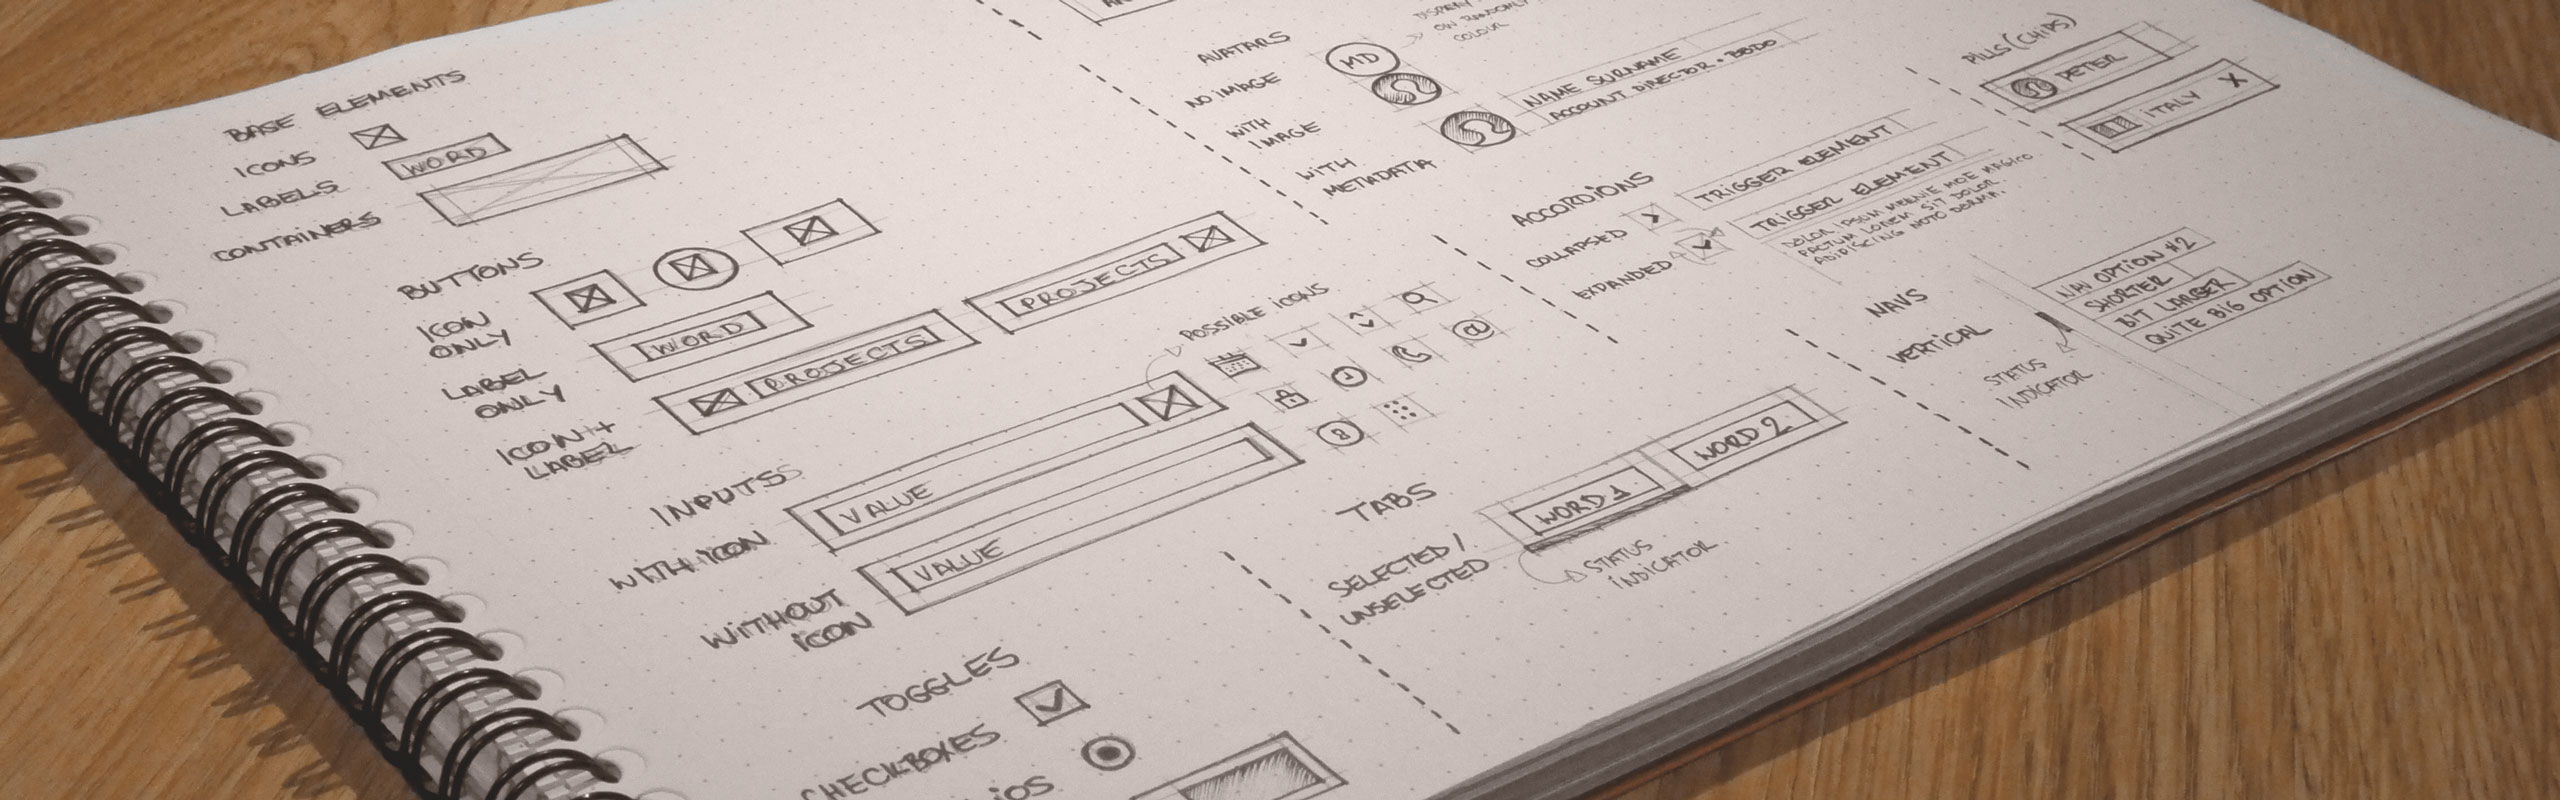 BASE ELEMENTS
ICONS
LABELS
WORD
CONTAINERS
BUTTONS
ICON
ONLY
LABEL
ONLY
WORD
ICON +
LABEL
PROJECTS
PROJECTS
INPUTS
WITH ICON
VALUE
POSSIBLE ICONS
@
8
WITHOUT
ICON
VALUE
TOGGLES
CHECKBOXES
AVATARS
NO IMAGE
MD
DISPLAY
ON RANDOMLY
COLOUR
WITH
IMAGE
WITH
METADATA
NAME SURNAME
ACCOUNT DIRECTOR • BBDO
ACCORDIONS
COLLAPSED
TRIGGER ELEMENT
EXPANDED
TRIGGER ELEMENT
DOLOR IPSUM MEANIE MOE MAGICO
FACTUM LOREM SIT DOLOR
ADIPISCING NOTO DERMA.
TABS
SELECTED /
UNSELECTED
WORD 1
WORD 2
STATUS
INDICATOR
PILLS (CHIPS)
PETER
ITALY X
NAVS
VERTICAL
NAV OPTION #2
SHORTER
BIT LARGER
QUITE BIG OPTION
STATUS
INDICATOR